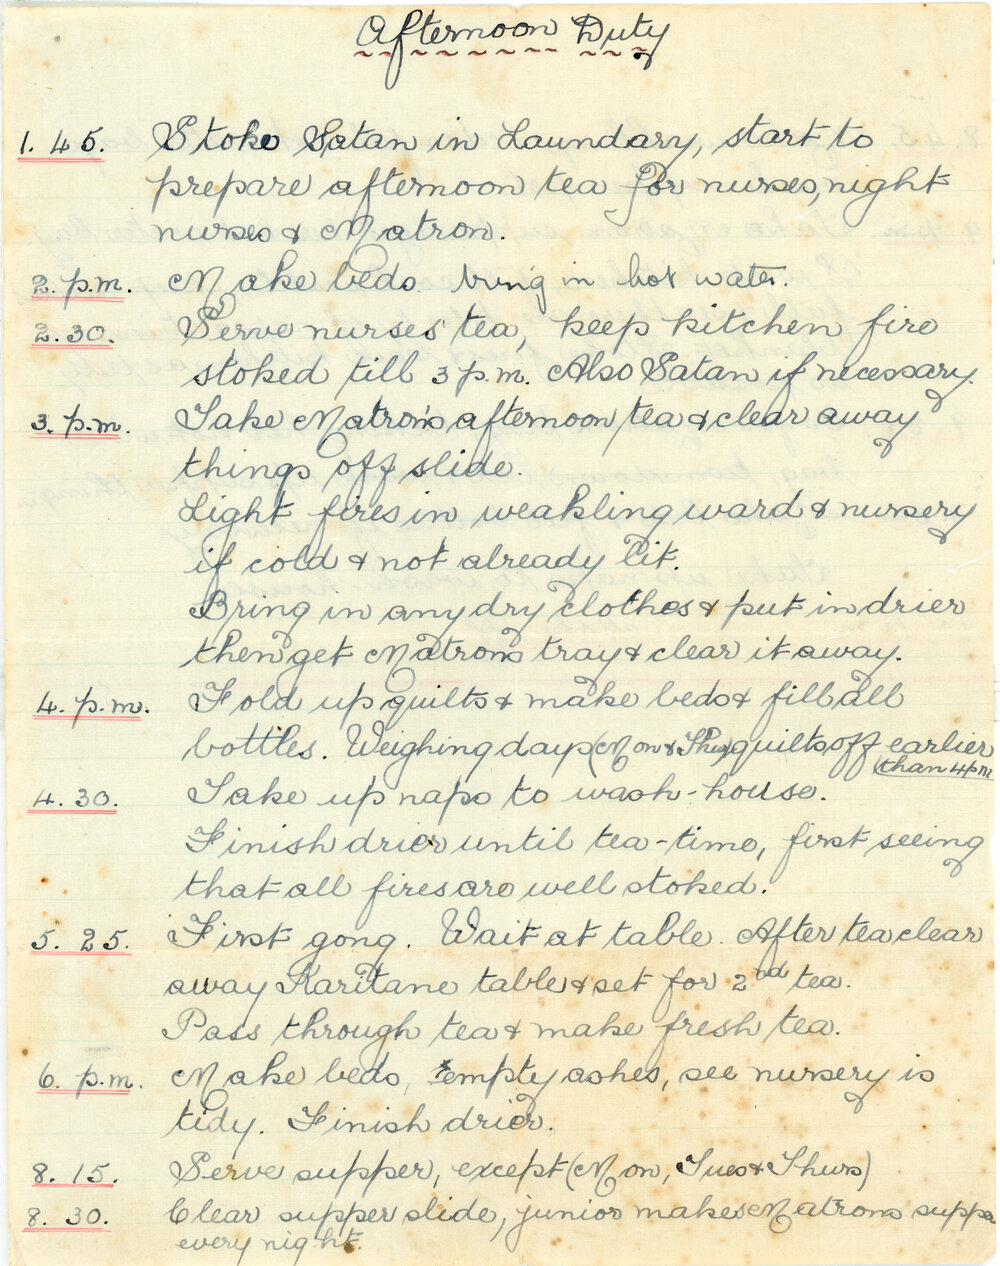 Afternoon Duty
1.45. Stoke Satan in Laundary, start to
prepare afternoon tea for nurses, night
nurses & Matron.
2. p.m. Make beds. bring in hot water.
2.30. Serve nurses' tea, keep kitchen fire
stoked till 3 p.m. Also Satan if necessary.
3. p.m. Take Matron's afternoon tea & clear away
things off slide.
Light fires in weakling ward & nursery
if cold & not already lit.
Bring in any dry clothes & put in drier
then get Matrons tray & clear it away.
4. p.m. Fold up quilts & make beds & fill all
bottles. Weighing days (Mon & Thurs) quilts off earlier
(than 4pm
4.30. Take up naps to wash-house.
Finish drier until tea-time, first seeing
that all fires are well stoked.
5.25. First gong. Wait at table. After tea clear
away Karitane table & set for 2nd tea.
Pass through tea & make fresh tea.
6. p.m. Make beds, empty ashes, see nursery is
tidy. Finish drier.
8.15. Serve supper, except (Mon, Tues & Thurs)
8.30. Clear supper slide, junior makes Matrons supper
every night.